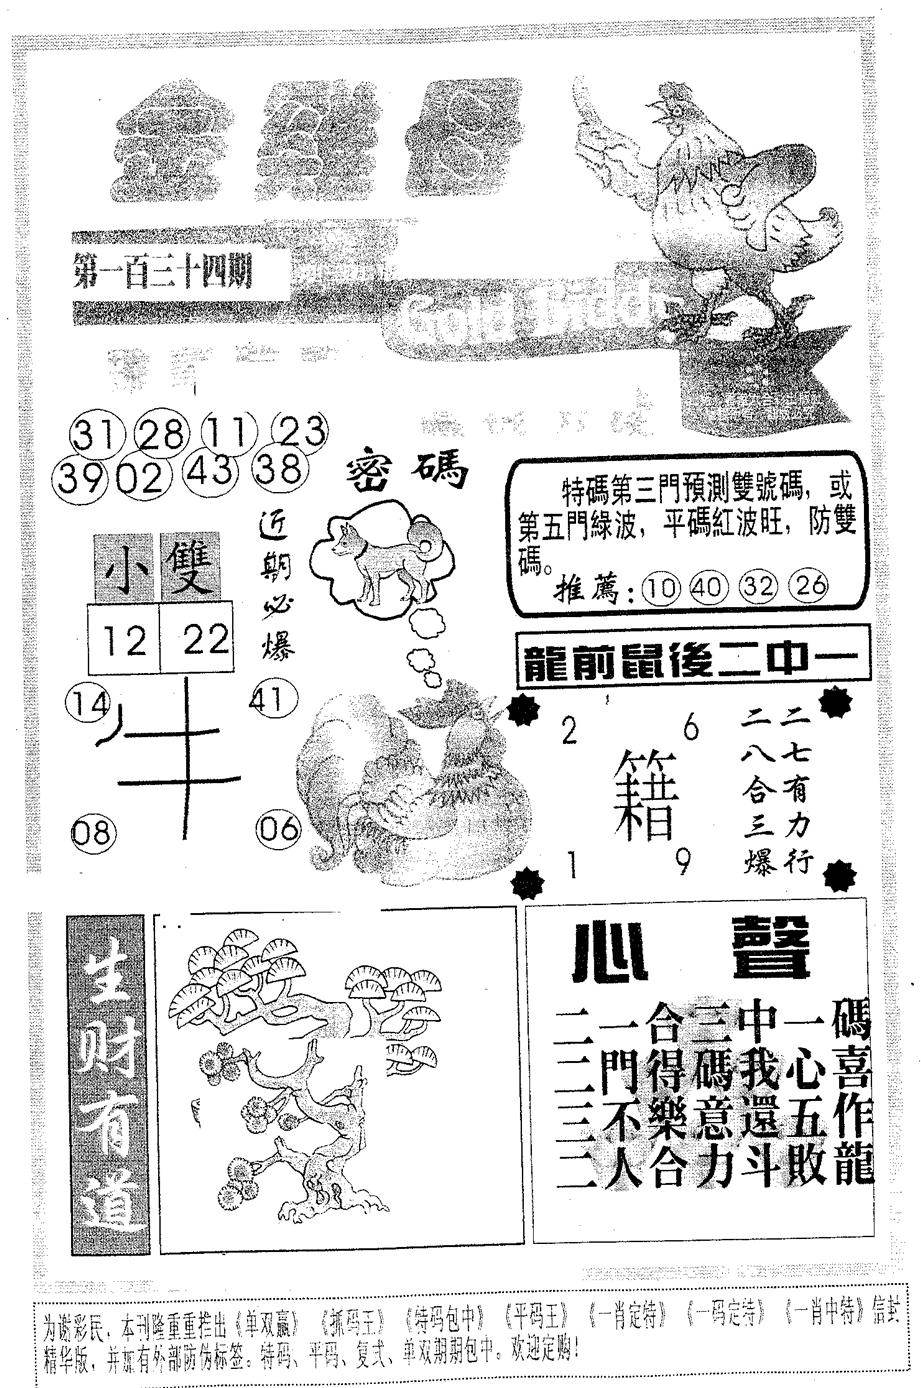 金雞母
第一百三十四期
Gold Bidd
31 28 11 23
39 02 43 38
密碼
近期必爆
小 雙
12 22
14 41
牛
08 06
特碼第三門預測雙號碼，或
第五門綠波，平碼紅波旺，防雙
碼。
推薦：10 40 32 26
龍前鼠後二中一
2 6
籍
1 9
二七有力行
二八合三爆
生财有道
心聲
二一合三中一碼
二門得碼我心喜
三不樂意還五作
二人合力斗敗龍
为谢彩民，本刊隆重重推出《单双赢》《抓码王》《特码包中》《平码王》《一肖定特》《一码定特》《一肖中特》信封
精华版，并加有外部防伪标签。特码、平码、复式、单双期期包中。欢迎定购！